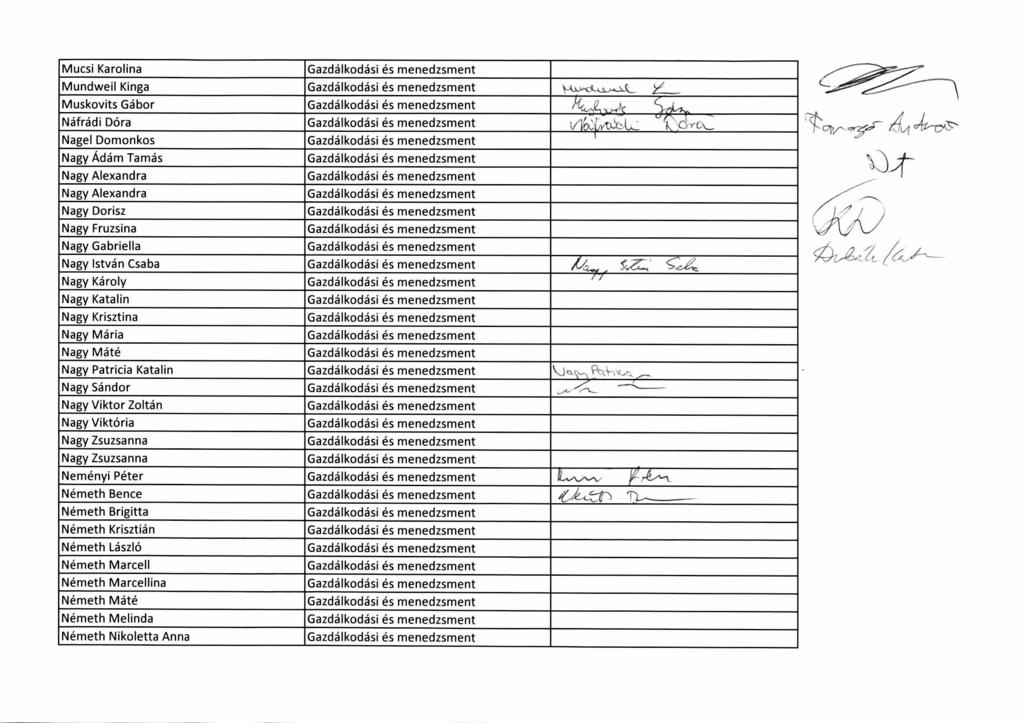 Mucsi Karolina Gazdálkodási és menedzsment
Mundweil Kinga Gazdálkodási és menedzsment Mundweil K
Muskovits Gábor Gazdálkodási és menedzsment Muskovits Gábor
Náfrádi Dóra Gazdálkodási és menedzsment Náfrádi Dóra
Nagel Domonkos Gazdálkodási és menedzsment
Nagy Ádám Tamás Gazdálkodási és menedzsment
Nagy Alexandra Gazdálkodási és menedzsment
Nagy Alexandra Gazdálkodási és menedzsment
Nagy Dorisz Gazdálkodási és menedzsment
Nagy Fruzsina Gazdálkodási és menedzsment
Nagy Gabriella Gazdálkodási és menedzsment
Nagy István Csaba Gazdálkodási és menedzsment Nagy
Nagy Károly Gazdálkodási és menedzsment
Nagy Katalin Gazdálkodási és menedzsment
Nagy Krisztina Gazdálkodási és menedzsment
Nagy Mária Gazdálkodási és menedzsment
Nagy Máté Gazdálkodási és menedzsment
Nagy Patricia Katalin Gazdálkodási és menedzsment Nagy Patricia
Nagy Sándor Gazdálkodási és menedzsment
Nagy Viktor Zoltán Gazdálkodási és menedzsment
Nagy Viktória Gazdálkodási és menedzsment
Nagy Zsuzsanna Gazdálkodási és menedzsment
Nagy Zsuzsanna Gazdálkodási és menedzsment
Neményi Péter Gazdálkodási és menedzsment
Németh Bence Gazdálkodási és menedzsment
Németh Brigitta Gazdálkodási és menedzsment
Németh Krisztián Gazdálkodási és menedzsment
Németh László Gazdálkodási és menedzsment
Németh Marcell Gazdálkodási és menedzsment
Németh Marcellina Gazdálkodási és menedzsment
Németh Máté Gazdálkodási és menedzsment
Németh Melinda Gazdálkodási és menedzsment
Németh Nikoletta Anna Gazdálkodási és menedzsment